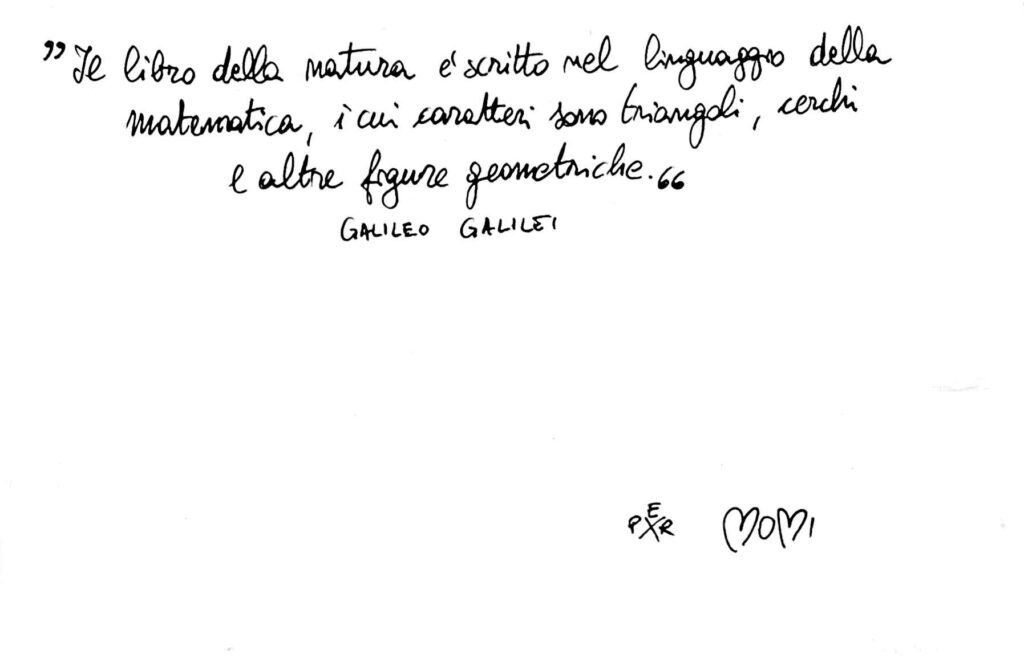 ”Il libro della natura é scritto nel linguaggio della
matematica, i cui caratteri sono triangoli, cerchi
e altre figure geometriche.“
GALILEO GALILEI
PER MOMI